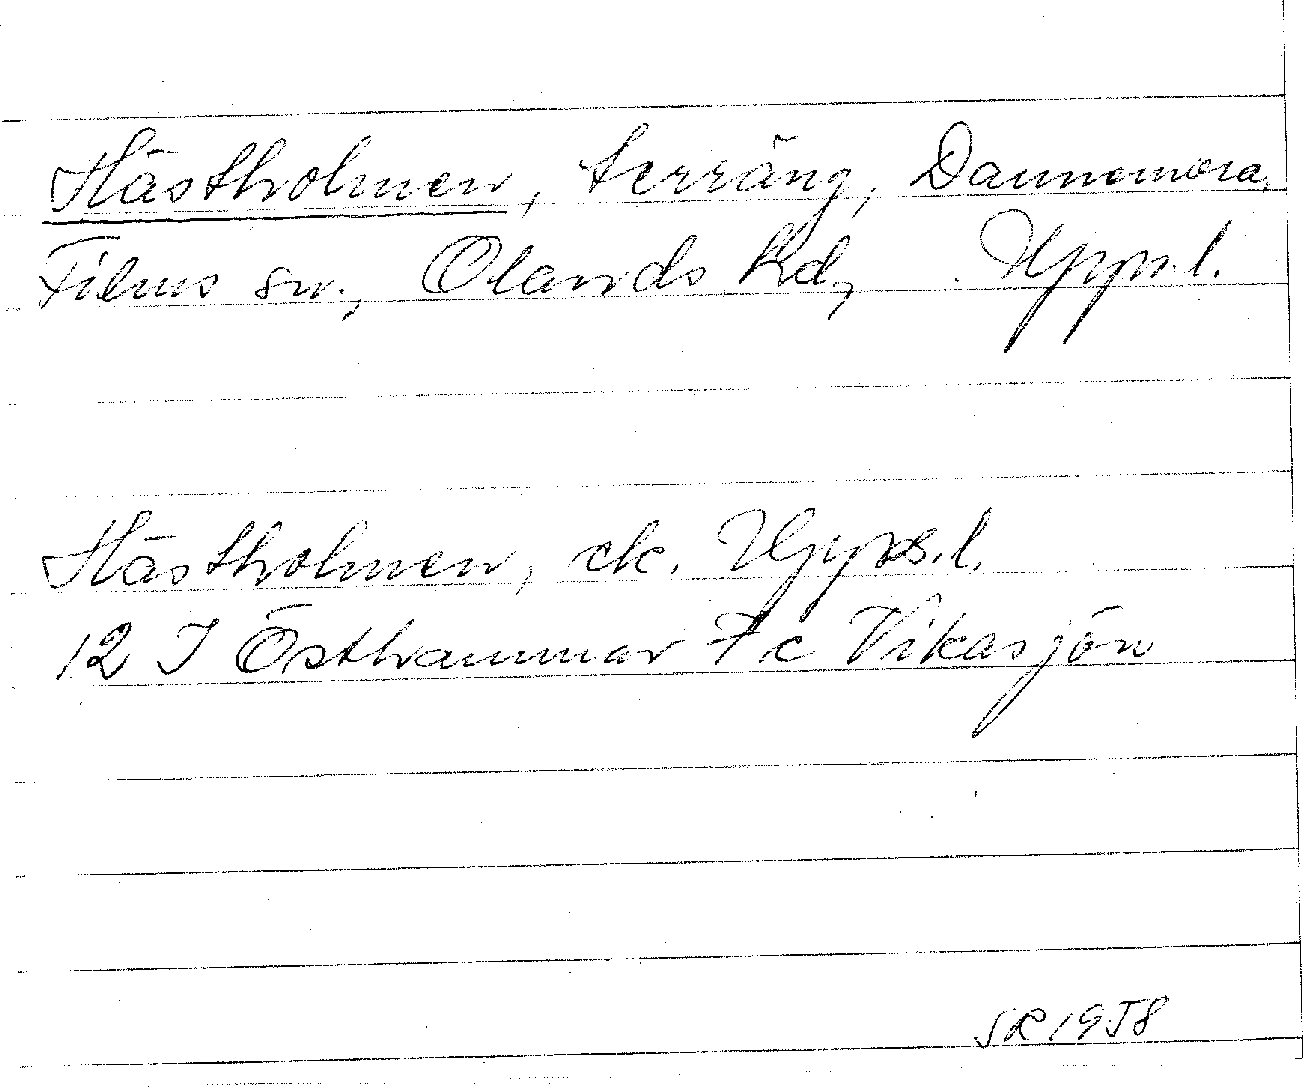 Hästholmen, terräng, Dannemora,
Films sn., Olands hd, Upps.l.
Hästholmen, ek. Upps.l.
12 I Östhammar 7 c Vikasjön
SR 1958